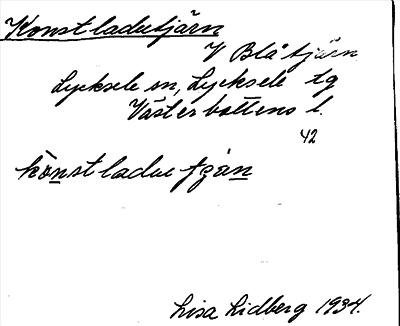 Konstladutjärn
V Blåtjärn
Lycksele sn, Lycksele tg
Västerbottens l.
42
kònstladue tjän
Lisa Lidberg 1934.